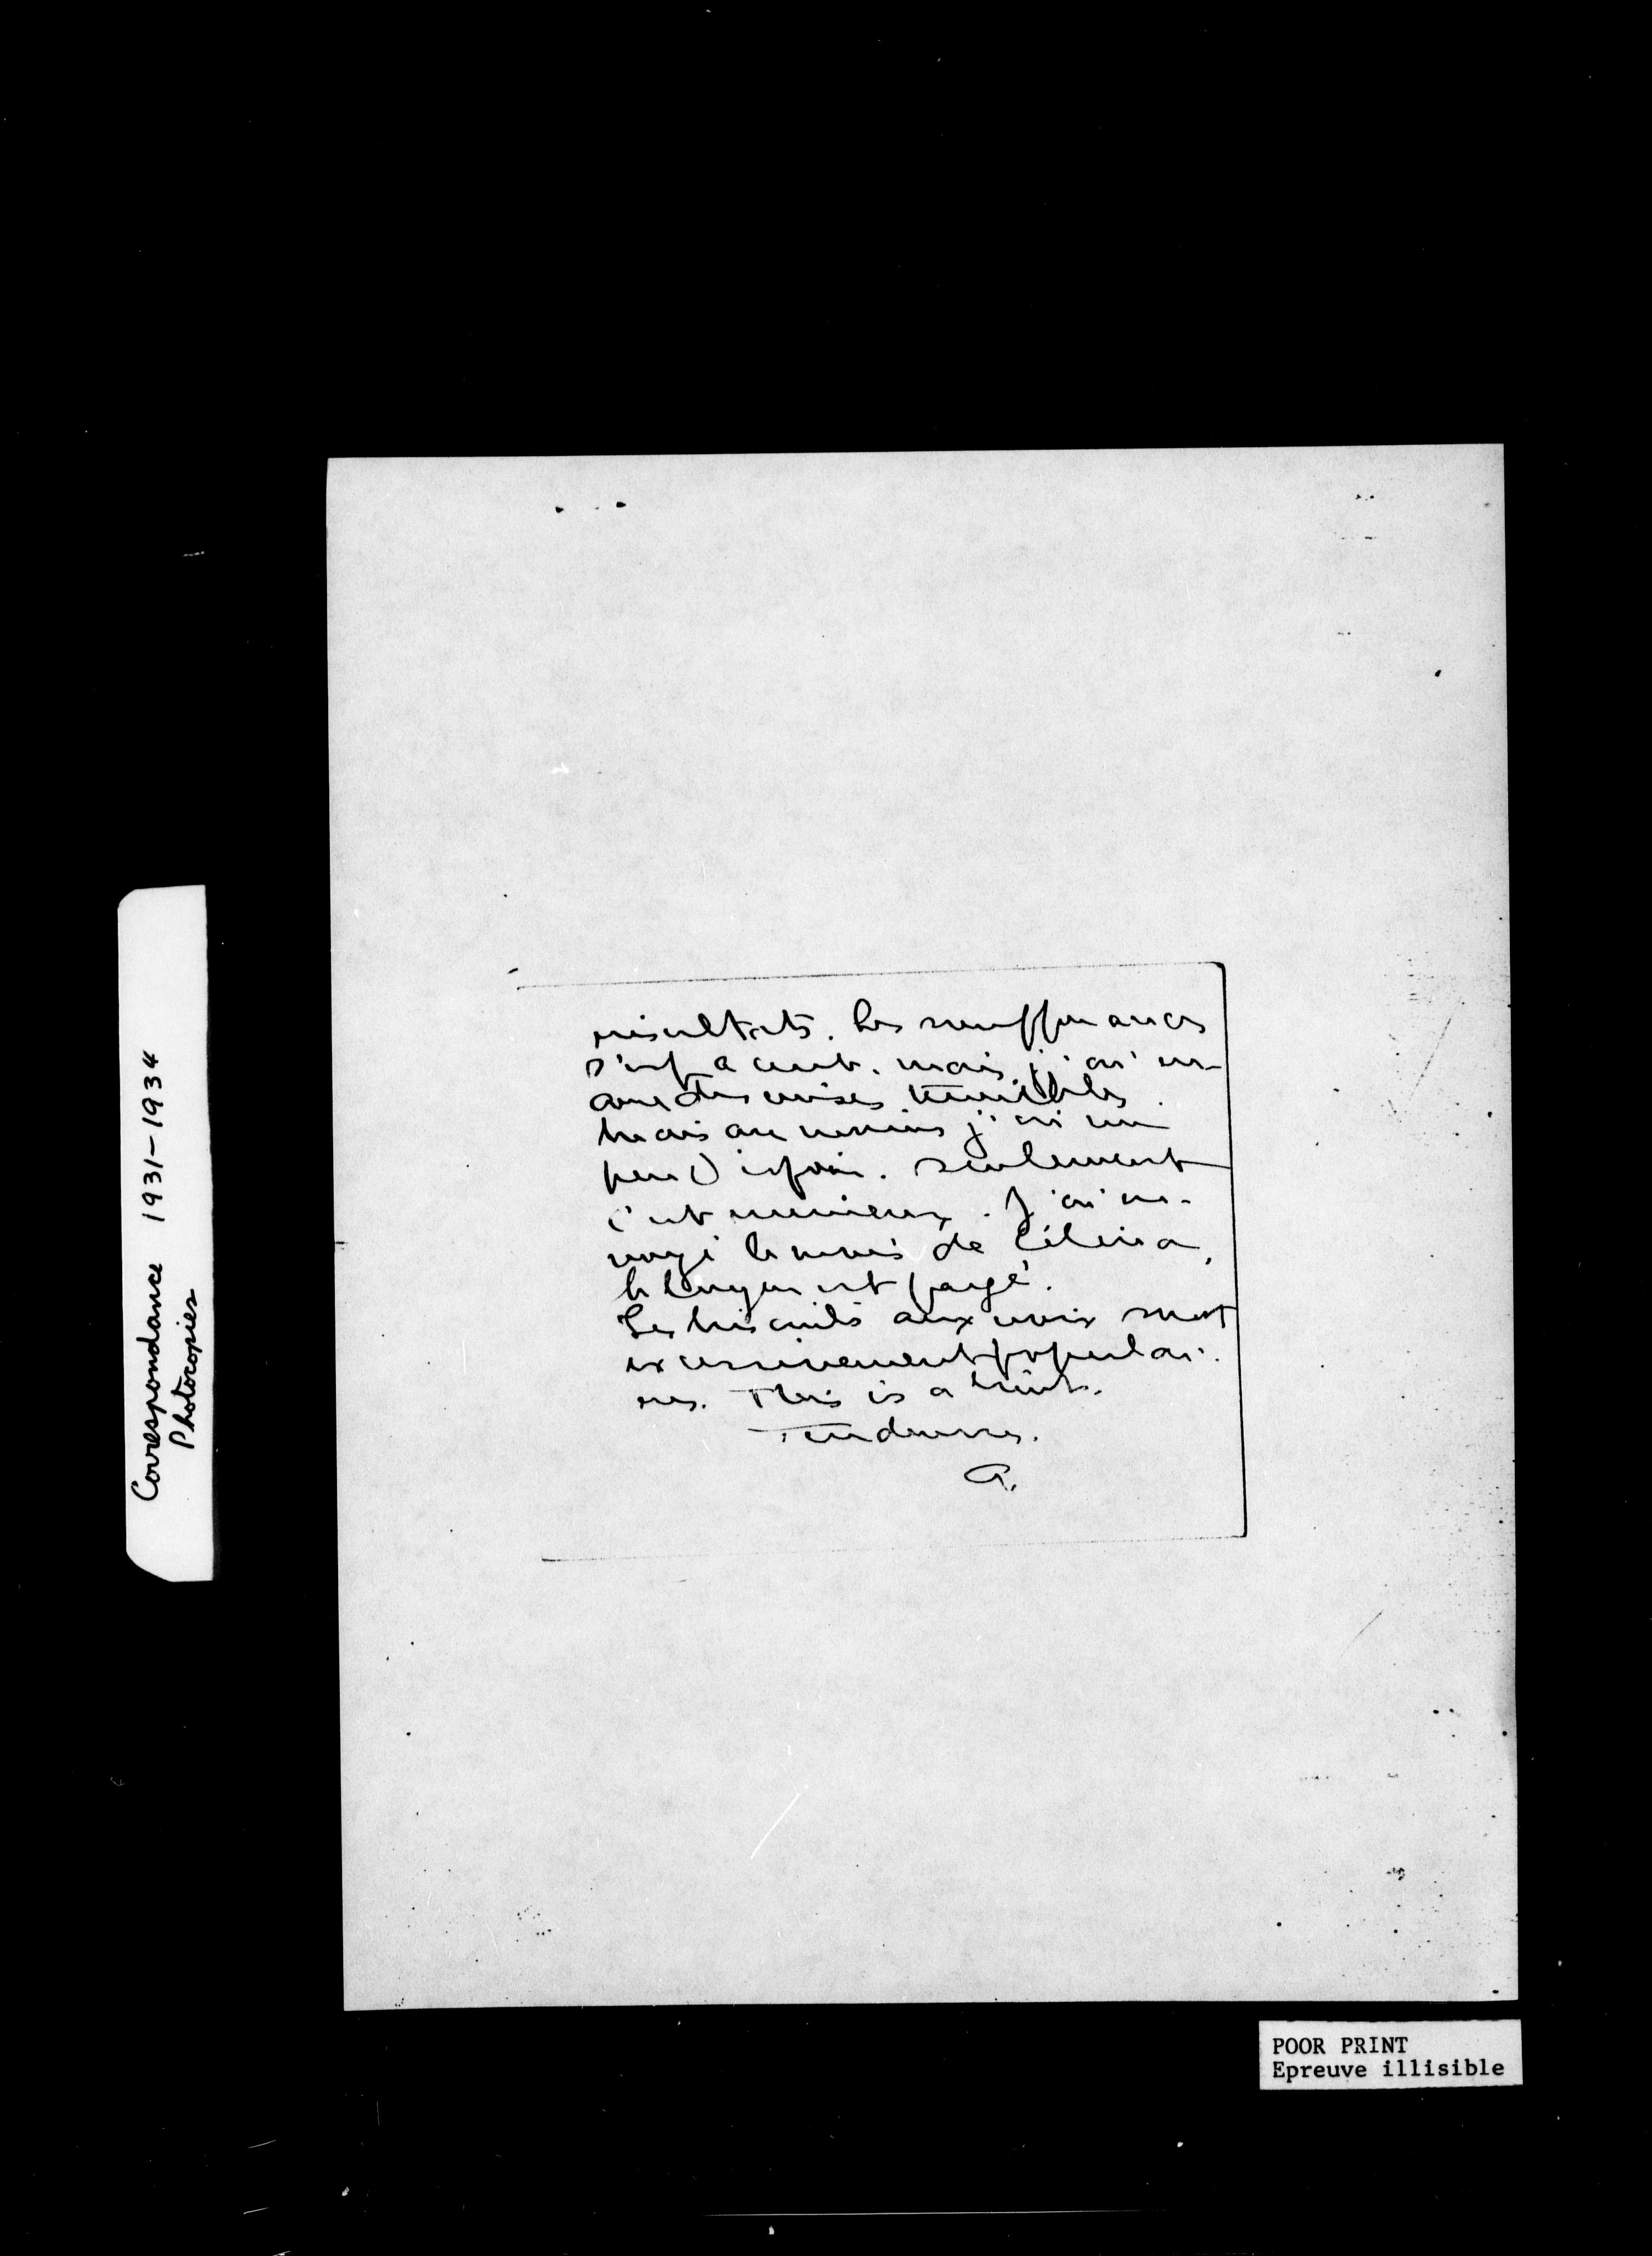 Correspondance 1931-1934
Photocopies
résultats. Les souffrances
s'espacent. mais j'ai en-
core des crises terribles.
Mais au moins j'ai un
peu d'espoir. Seulement
c'est sérieux. J'ai en-
voyé le mois de Célina,
le loyer est payé.
Les biscuits aux noix sont
excessivement populai-
res. This is a hint.
Tendresses.
A.
POOR PRINT
Epreuve illisible